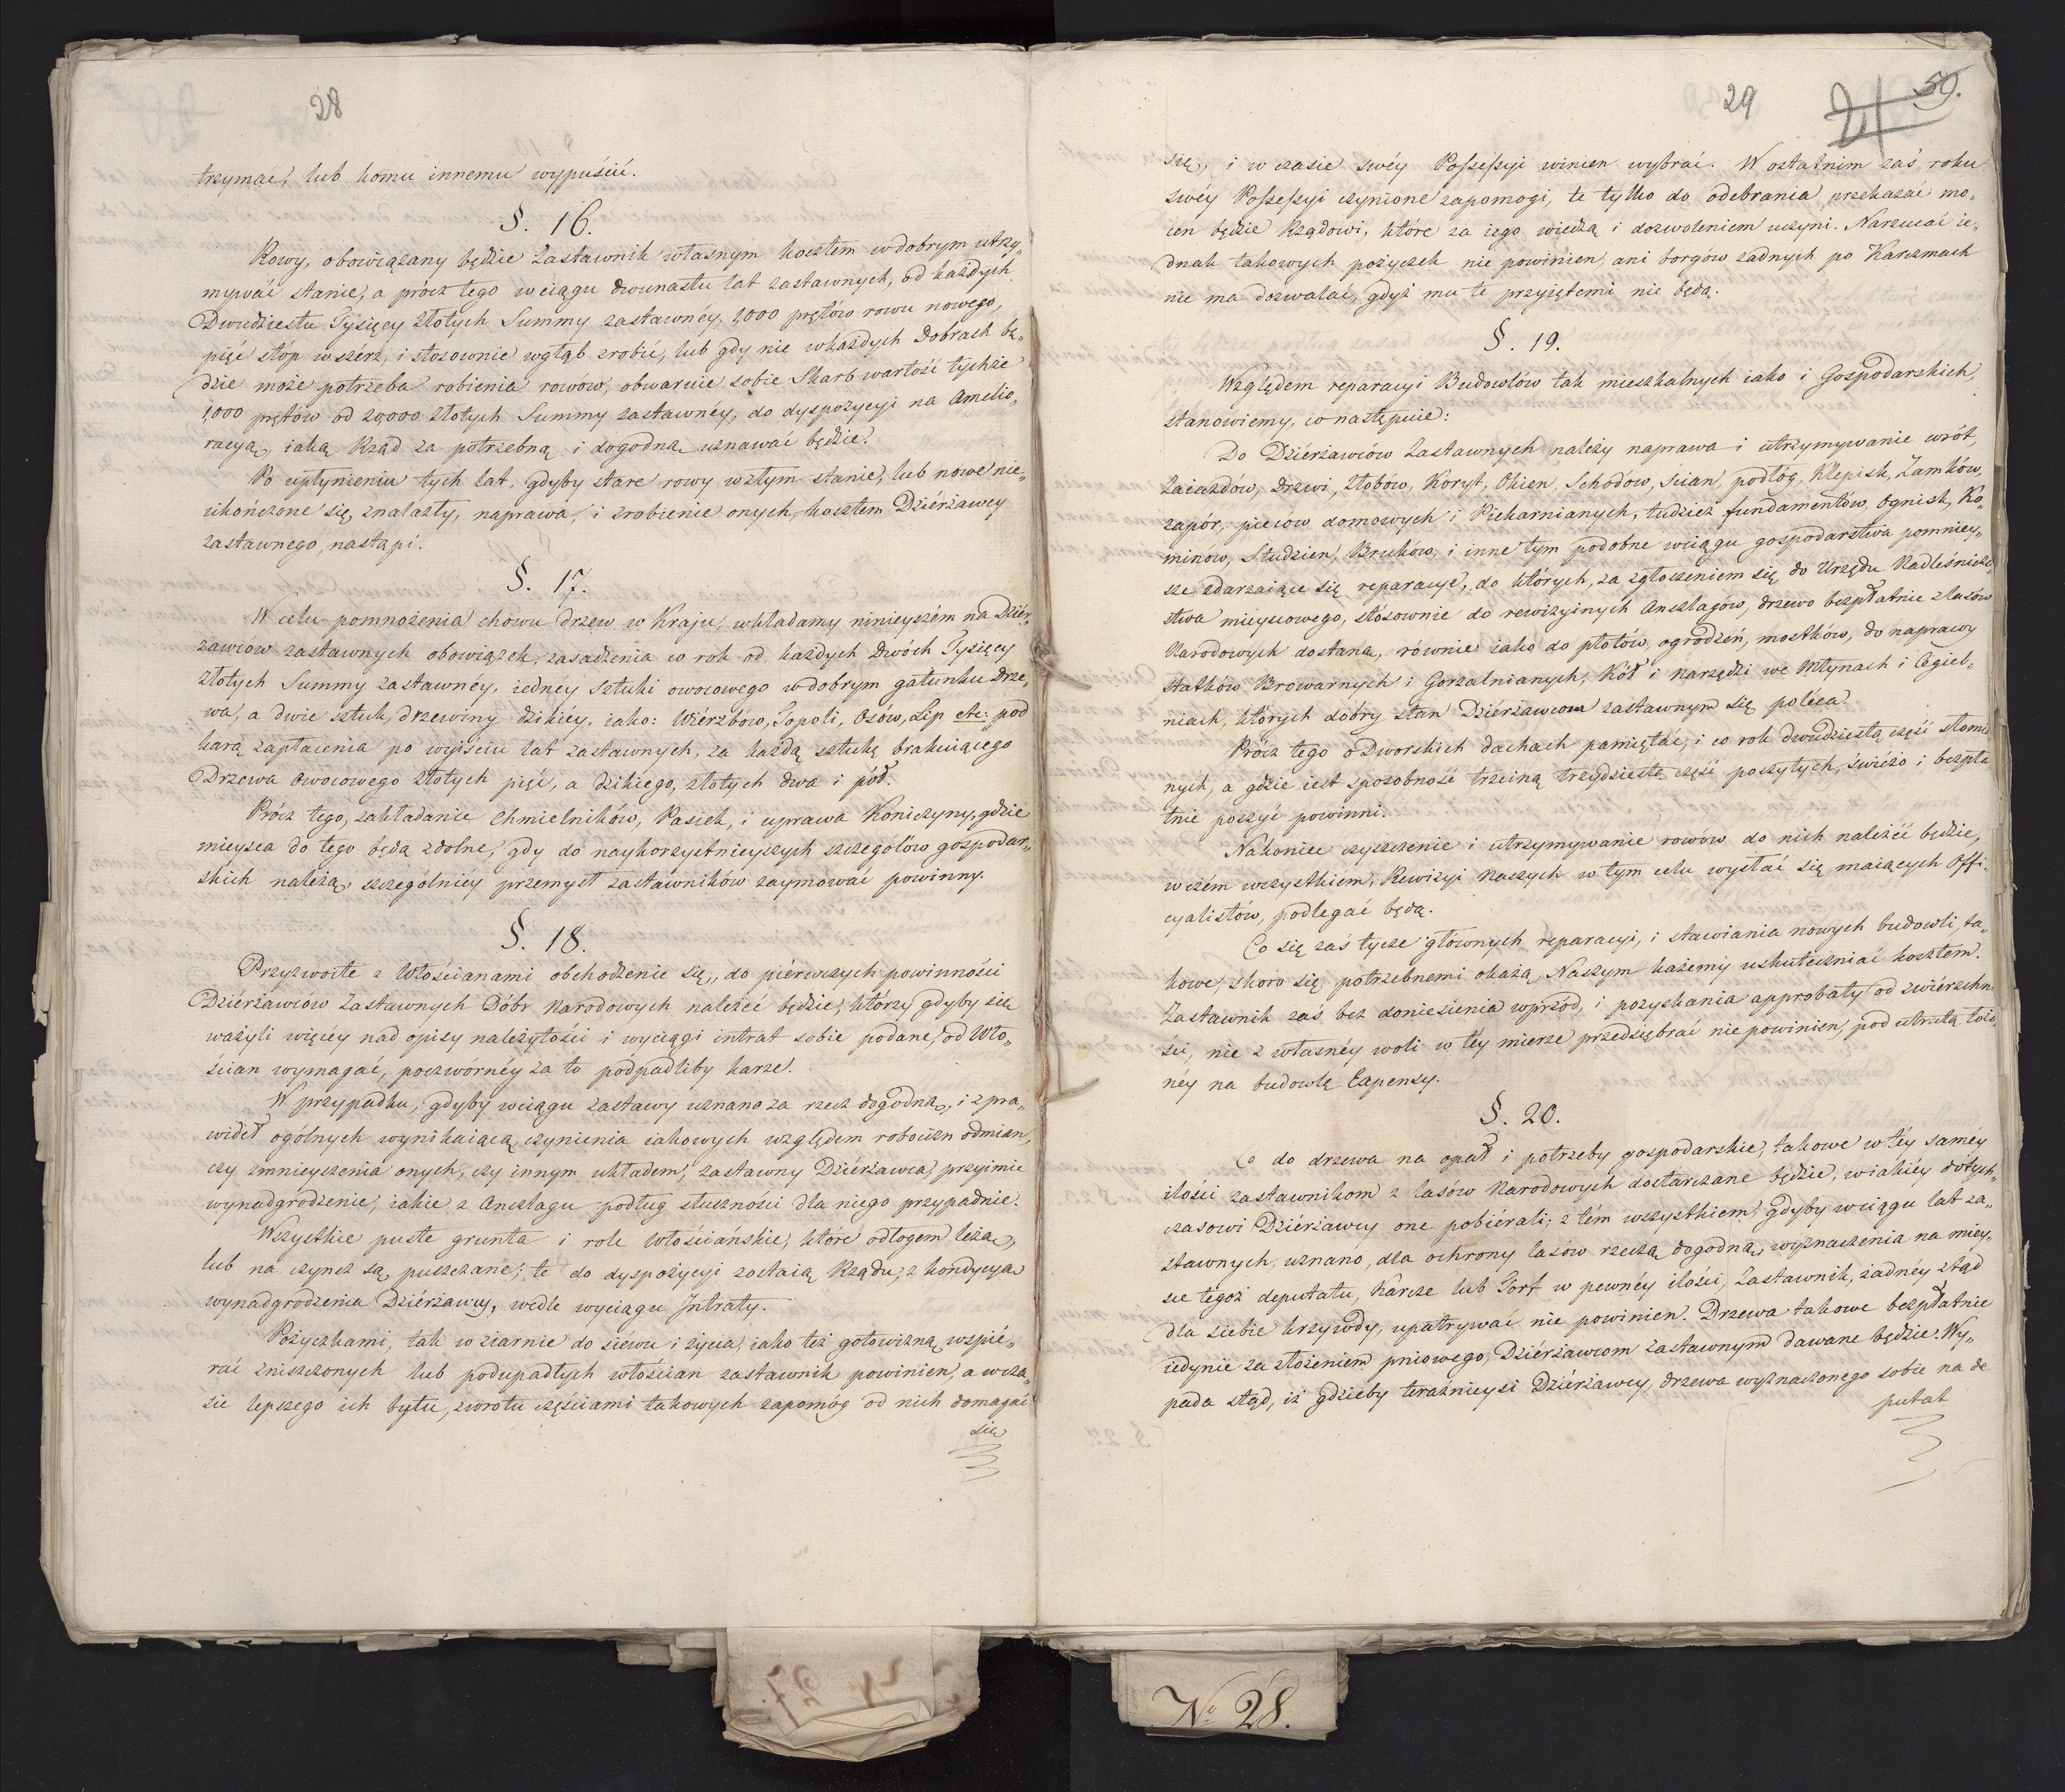 28
trzymać, lub komu innemu wypuścić.
§. 16.
Rowy, obowiązany będzie Zastawnik własnym kosztem w dobrym utrzy„
mywać stanie, a prócz tego w ciągu dwunastu lat zastawnych, od każdych
Dwudziestu Tysięcy Złotych Summy zastawnéy, 1,000 prętów rowu nowego,
pięć stóp wszérz, i stosownie wgłąb zrobić, lub gdy nie wkażdych Dobrach bę„
dzie może potrzeba robienia rowów, obwaruie sobie Skarb wartość tychże
1,000 prętów od 20,000 Złotych Summy zastawnéy, do dyspozycyi na Amelio„
racyą, iaką Rząd za potrzebną i dogodną uznawać będzie.
Po upłynieniu tych lat, gdyby stare rowy wzłym stanie, lub nowe nie„
ukończone się znalazły, naprawa, i zrobienie onych, kosztem Dziérżawcy
zastawnego, nastąpi.
§. 17.
W celu pomnożenia chowu drzew w Kraju, wkładamy ninieyszém na Dziér„
żawców zastawnych obowiązek, zasadzenia co rok od każdych Dwóch Tysięcy
Złotych Summy zastawnéy, iednéy sztuki owocowego w dobrym gatunku Drze„
wa, a dwie sztuk, drzewiny dzikiéy, iako: Wiérzbów, Topoli, Osów, Lip etc: pod
karą zapłacenia po wyiściu lat zastawnych, za każdą sztukę brakuiącego
Drzewa owocowego Złotych pięć, a dzikiego, złotych dwa i pół.
Prócz tego, zakładanie Chmielników, Pasiek, i uprawa Koniczyny, gdzie
mieysca do tego będą zdolne, gdy do naykorzystnieyszych szczegółów gospodar„
skich należą, szczególniéy przemysł zastawników zaymować powinny.
§. 18.
Przyzwoite z Włościanami obchodzenie się, do piérwszych powinności
Dziérżawców Zastawnych Dóbr Narodowych należeć będzie, którzy gdyby się
ważyli więcey nad opisy należytości i wyciągi intrat sobie podane, od Wło„
ścian wymagać, poczwórnéy za to podpadliby karze.
W przypadku, gdyby wciągu zastawy uznano za rzecz dogodną, i z pra„
wideł ogólnych wynikaiącą, czynienia iakowych względem robocizn odmian,
czy zmnieyszenia onych, czy innym układem, zastawny Dziérżawca, przyimie
wynadgrodzenie, iakie z Anszlagu podług słuszności dla niego przypadnie.
Wszystkie puste grunta i role Włościańskie, które odłogem leżą,
lub na czynsz są puszczane; te do dyspozycyi zostaią Rządu, z kondycyą
wynadgrodzenia Dziérżawcy, wedle wyciągu Intraty.
Pożyczkami, tak w ziarnie do siéwu i życia, iako też gotowizną wspié„
rać zniszczonych lub podupadłych włościan zastawnik powinien, a w cza„
sie lepszego ich bytu, zwrotu częściami takowych zapomóg od nich domagać
się
29
21
59.
się, i w czasie swéy Possessyi winien wybrać. W ostatnim zaś roku
swéy Possessyi czynione zapomogi, te tylko do odebrania przekazać mo„
cen będzie Rządowi, które za iego wiedzą i dozwoleniem uczyni. Narzucać ie„
dnak takowych pożyczek nie powinien, ani borgów żadnych po Karczmach
nie ma dozwalać, gdyż mu te przyiętemi nie będą.
§. 19.
Względem reparacyi Budowlów tak mieszkalnych iako i Gospodarskich,
stanowiemy, co następuie:
Do Dziérżawców Zastawnych należy naprawa i utrzymywanie wrót,
Zaiazdów, drzwi, żłobów, Koryt, Okien, Schodów, Ścian, podłóg, Klepisk, Zamków,
zapór, pieców domowych i Piekarnianych, tudzież fundamentów, Ognisk, Ko„
minów, Studzien, Bruków, i inne tym podobne wciągu gospodarstwa pomniey„
sze zdarzaiące się reparacye, do których, za zgłoszeniem się do Urzędu Nadleśnicze„
stwa mieyscowego, stósownie do rewizyinych Anszlagów, drzewo bezpłatnie z lasów
Narodowych dostaną, równie iako do płotów, ogrodzeń, mostków, do naprawy
statków Browarnych i Gorzalnianych, Kół i narzędzi we Młynach i Cegiel„
niach, których dobry stan Dzierżawcom zastawnym się poléca.
Prócz tego o Dworskich dachach pamiętać, i co rok dwudziestą część słomia
nych, a gdzie iest sposobność trzciną trzydziestą część poszytych, świéżo i bezpła
tnie poszyć powinni.
Nakoniec czyszczenie i utrzymywanie rowów do nich należéć będzie,
w czém wszystkiem, Rewizyi Naszych w tym celu wysłać się maiących Offi„
cyalistów, podlegać będą.
Co się zaś tycze głównych reparacyi, i stawiania nowych budowli, ta„
kowe, skoro się potrzebnemi okażą, Naszym każemy uskuteczniać kosztem.
Zastawnik zaś bez doniesienia wprzód, i pozyskania approbaty od zwiérzchno
ści, nie z własnéy woli w téy mierze przedsiębrać nie powinien, pod utratą łożo
néy na budowlę Expensy.
§. 20.
Co do drzewa na opał i potrzeby gospodarskie, takowe w téy saméy
ilości zastawnikom z lasów Narodowych dostarczane będzie, w iakiéy dotych„
czasowi Dziérżawcy one pobiérali; z tém wszystkiem, gdyby wciągu lat za„
stawnych, uznano, dla ochrony lasów rzeczą dogodną, wyznaczenia na miey„
sce tegoż deputatu, Karcze lub Torf w pewnéy ilości, Zastawnik, żadnéy ztąd
dla siebie krzywdy, upatrywać nie powinien. Drzewa takowe bezpłatnie
iedynie za złożeniem pniowego, Dziérżawcom zastawnym dawane będzie. Wy„
pada stąd, iż gdzieby teraźnieysi Dziérżawcy, drzewa wyznaczonego sobie na de
putat
No 28.